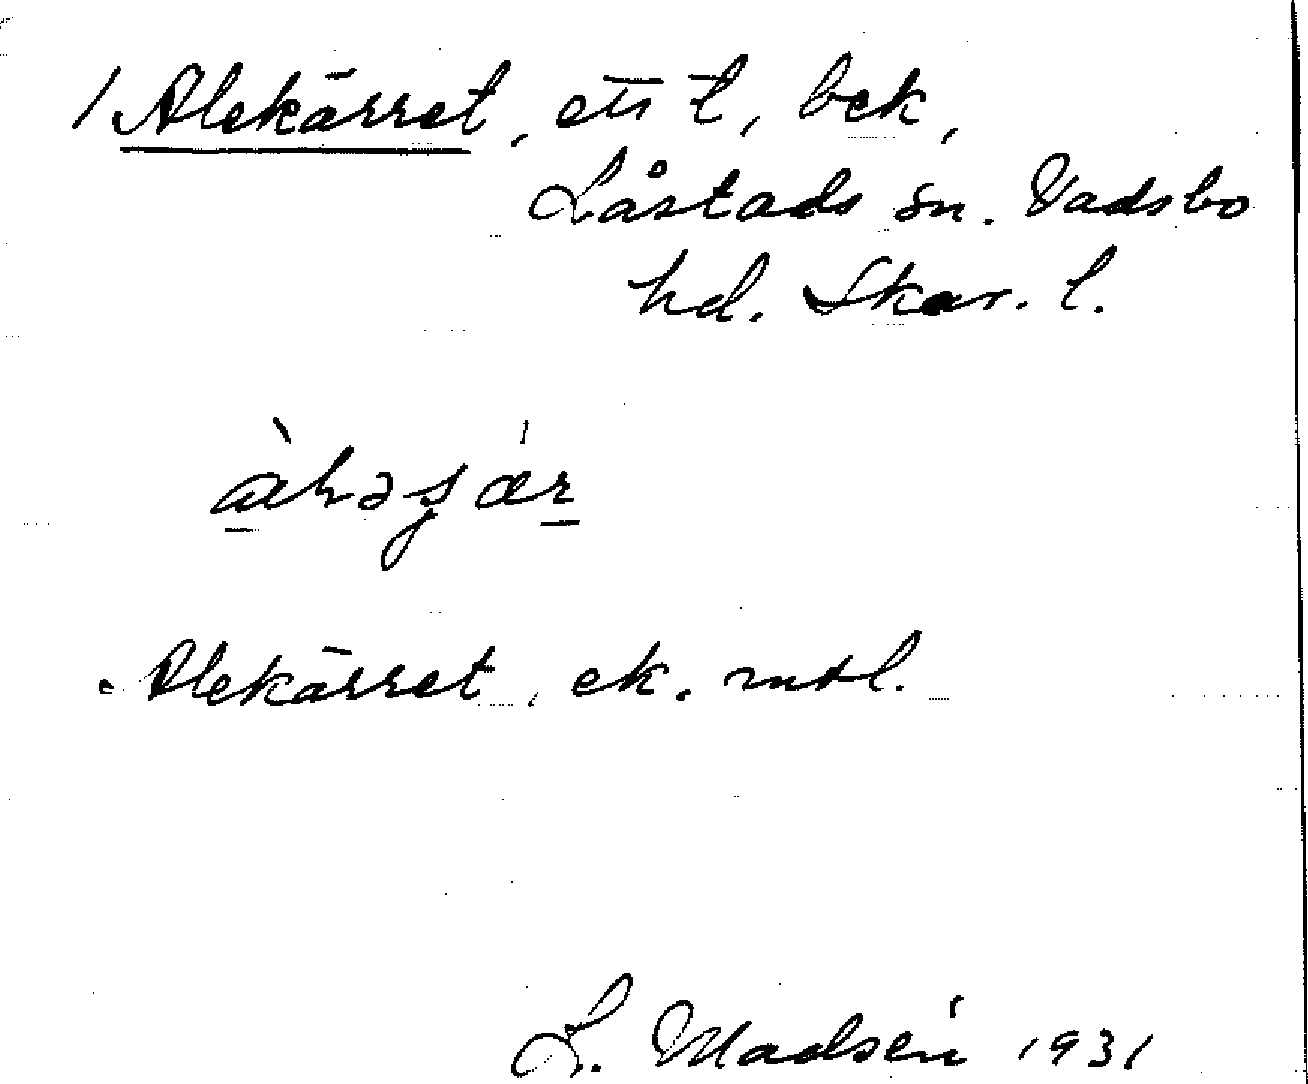 / Alekärret, ett t, bek,
Låstads sn. Vadsbo
hd. Skar. l.
Alekärret, ek. mtl.
L. Madsén 1931